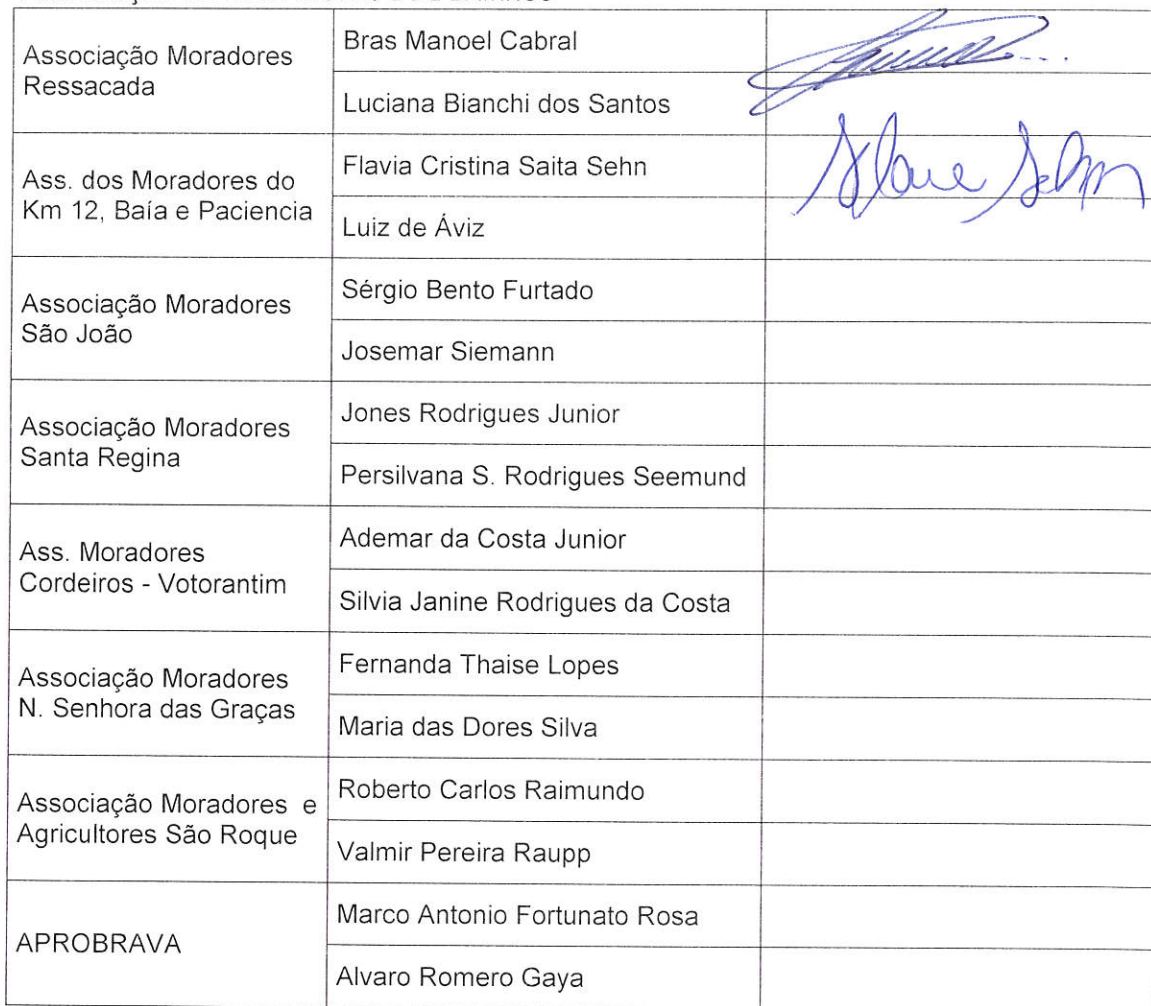 Associação Moradores
Ressacada
Bras Manoel Cabral
Luciana Bianchi dos Santos
Ass. dos Moradores do
Km 12, Baía e Paciencia
Flavia Cristina Saita Sehn
Luiz de Áviz
Sehn
Associação Moradores
São João
Sérgio Bento Furtado
Josemar Siemann
Associação Moradores
Santa Regina
Jones Rodrigues Junior
Persilvana S. Rodrigues Seemund
Ass. Moradores
Cordeiros - Votorantim
Ademar da Costa Junior
Silvia Janine Rodrigues da Costa
Associação Moradores
N. Senhora das Graças
Fernanda Thaise Lopes
Maria das Dores Silva
Associação Moradores e
Agricultores São Roque
Roberto Carlos Raimundo
Valmir Pereira Raupp
APROBRAVA
Marco Antonio Fortunato Rosa
Alvaro Romero Gaya